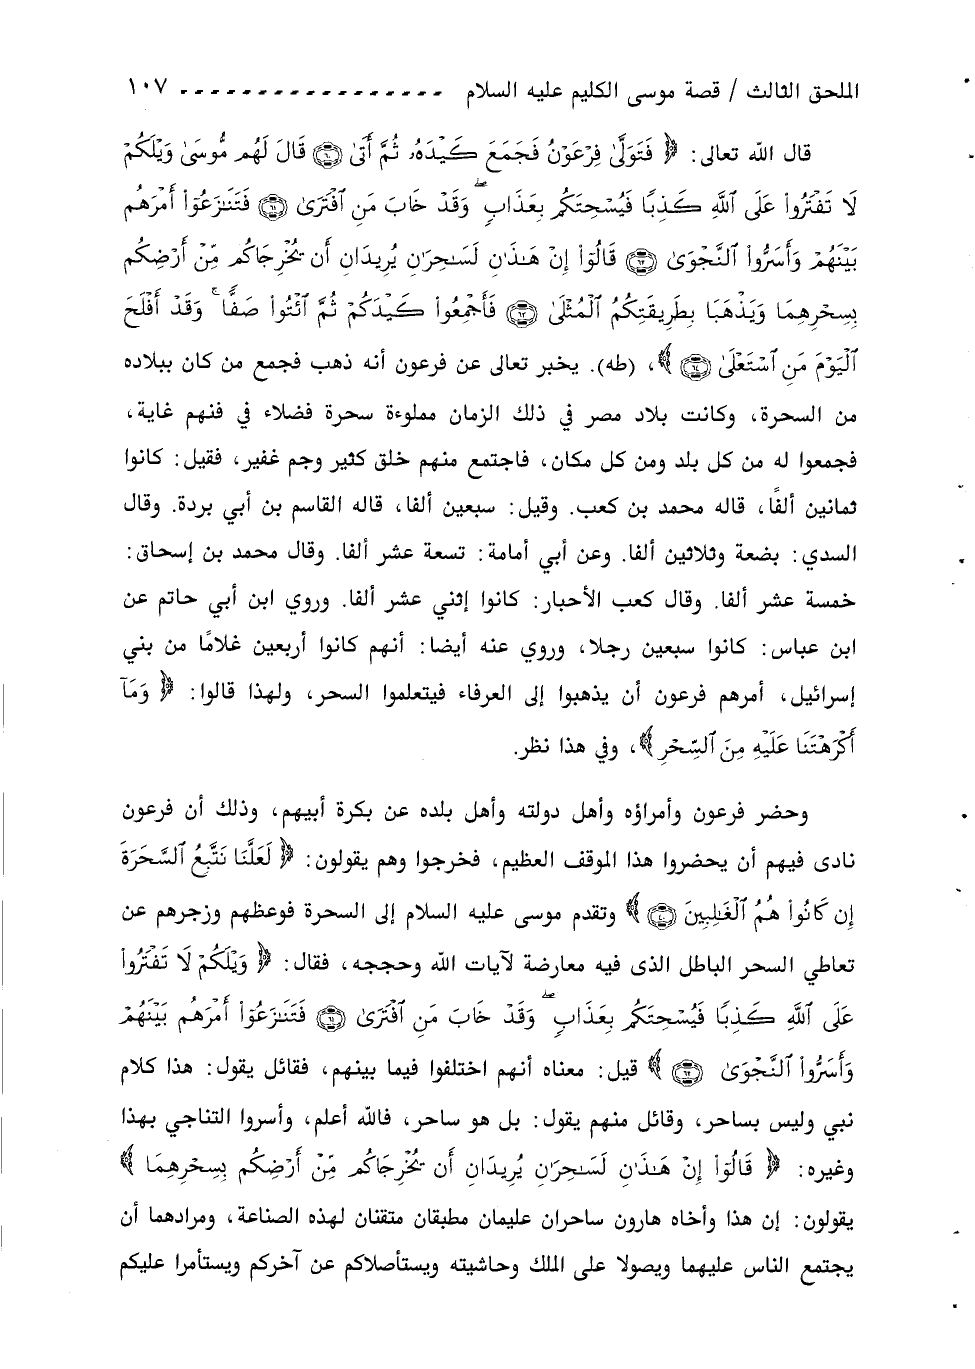 الملحق الثالث / قصة موسى الكليم عليه السلام ـ ـ ـ ـ ـ ـ ـ ـ ـ ـ ـ ـ ـ ـ ـ ـ ـ ١٠٧
قال الله تعالى: ﴿ فَتَوَلَّىٰ فِرْعَوْنُ فَجَمَعَ كَيْدَهُۥ ثُمَّ أَتَىٰ ۝٦٠ قَالَ لَهُم مُّوسَىٰ وَيْلَكُمْ
لَا تَفْتَرُوا۟ عَلَى ٱللَّهِ كَذِبًا فَيُسْحِتَكُم بِعَذَابٍ ۖ وَقَدْ خَابَ مَنِ ٱفْتَرَىٰ ۝٦١ فَتَنَـٰزَعُوٓا۟ أَمْرَهُم
بَيْنَهُمْ وَأَسَرُّوا۟ ٱلنَّجْوَىٰ ۝٦٢ قَالُوٓا۟ إِنْ هَـٰذَٰنِ لَسَـٰحِرَٰنِ يُرِيدَانِ أَن يُخْرِجَاكُم مِّنْ أَرْضِكُم
بِسِحْرِهِمَا وَيَذْهَبَا بِطَرِيقَتِكُمُ ٱلْمُثْلَىٰ ۝٦٣ فَأَجْمِعُوا۟ كَيْدَكُمْ ثُمَّ ٱئْتُوا۟ صَفًّا ۚ وَقَدْ أَفْلَحَ
ٱلْيَوْمَ مَنِ ٱسْتَعْلَىٰ ۝٦٤ ﴾، (طه). يخبر تعالى عن فرعون أنه ذهب فجمع من كان ببلاده
من السحرة، وكانت بلاد مصر في ذلك الزمان مملوءة سحرة فضلاء في فنهم غاية،
فجمعوا له من كل بلد ومن كل مكان، فاجتمع منهم خلق كثير وجم غفير، فقيل: كانوا
ثمانين ألفًا، قاله محمد بن كعب. وقيل: سبعين ألفا، قاله القاسم بن أبي بردة. وقال
السدي: بضعة وثلاثين ألفا. وعن أبي أمامة: تسعة عشر ألفا. وقال محمد بن إسحاق:
خمسة عشر ألفا. وقال كعب الأحبار: كانوا إثني عشر ألفا. وروي ابن أبي حاتم عن
ابن عباس: كانوا سبعين رجلا، وروي عنه أيضا: أنهم كانوا أربعين غلامًا من بني
إسرائيل، أمرهم فرعون أن يذهبوا إلى العرفاء فيتعلموا السحر، ولهذا قالوا: ﴿ وَمَآ
أَكْرَهْتَنَا عَلَيْهِ مِنَ ٱلسِّحْرِ ﴾، وفي هذا نظر.
وحضر فرعون وأمراؤه وأهل دولته وأهل بلده عن بكرة أبيهم، وذلك أن فرعون
نادى فيهم أن يحضروا هذا الموقف العظيم، فخرجوا وهم يقولون: ﴿ لَعَلَّنَا نَتَّبِعُ ٱلسَّحَرَةَ
إِن كَانُوا۟ هُمُ ٱلْغَـٰلِبِينَ ۝٤٠ ﴾ وتقدم موسى عليه السلام إلى السحرة فوعظهم وزجرهم عن
تعاطي السحر الباطل الذى فيه معارضة لآيات الله وحججه، فقال: ﴿ وَيْلَكُمْ لَا تَفْتَرُوا۟
عَلَى ٱللَّهِ كَذِبًا فَيُسْحِتَكُم بِعَذَابٍ ۖ وَقَدْ خَابَ مَنِ ٱفْتَرَىٰ ۝٦١ فَتَنَـٰزَعُوٓا۟ أَمْرَهُم بَيْنَهُمْ
وَأَسَرُّوا۟ ٱلنَّجْوَىٰ ۝٦٢ ﴾ قيل: معناه أنهم اختلفوا فيما بينهم، فقائل يقول: هذا كلام
نبي وليس بساحر، وقائل منهم يقول: بل هو ساحر، فالله أعلم، وأسروا التناجي بهذا
وغيره: ﴿ قَالُوٓا۟ إِنْ هَـٰذَٰنِ لَسَـٰحِرَٰنِ يُرِيدَانِ أَن يُخْرِجَاكُم مِّنْ أَرْضِكُم بِسِحْرِهِمَا ﴾
يقولون: إن هذا وأخاه هارون ساحران عليمان مطبقان متقنان لهذه الصناعة، ومرادهما أن
يجتمع الناس عليهما ويصولا على الملك وحاشيته ويستأصلاكم عن آخركم ويستأمرا عليكم